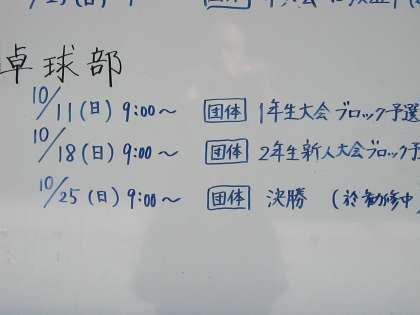 卓球部
10/11(日) 9:00〜 団体 1年生大会 ブロック予選
10/18(日) 9:00〜 団体 2年生新人大会ブロック予
10/25(日) 9:00〜 団体 決勝 (於勤修中